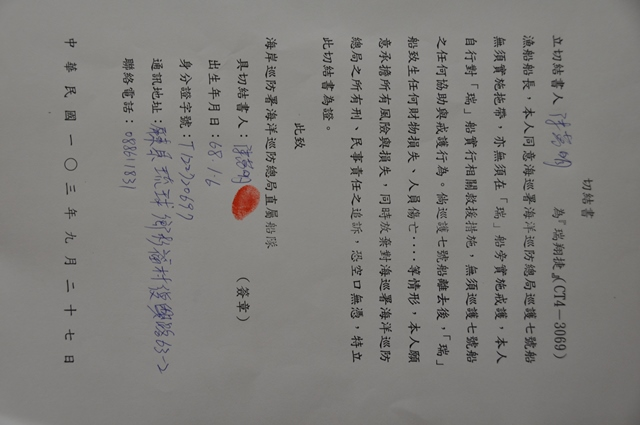 切結書
立切結書人 為『瑞翔捷』(CT4-3069)
漁船船長，本人同意海巡署海洋巡防總局巡護七號船
無須實施拖帶，亦無須在「瑞」船旁實施戒護，本人
自行對「瑞」船實行相關救援措施，無須巡護七號船
之任何協助與戒護行為。倘巡護七號船離去後，「瑞」
船致生任何財物損失、人員傷亡....等情形，本人願
意承擔所有風險與損失，同時放棄對海巡署海洋巡防
總局之所有刑、民事責任之追訴，恐空口無憑，特立
此切結書為證。
此致
海岸巡防署海洋巡防總局直屬船隊
具切結書人： (簽章)
出生年月日：68.1.6
身分證字號：T122220697
通訊地址：屏東琉球鄉杉福村復興路63-2
聯絡電話：088611831
中華民國一〇三年九月二十七日